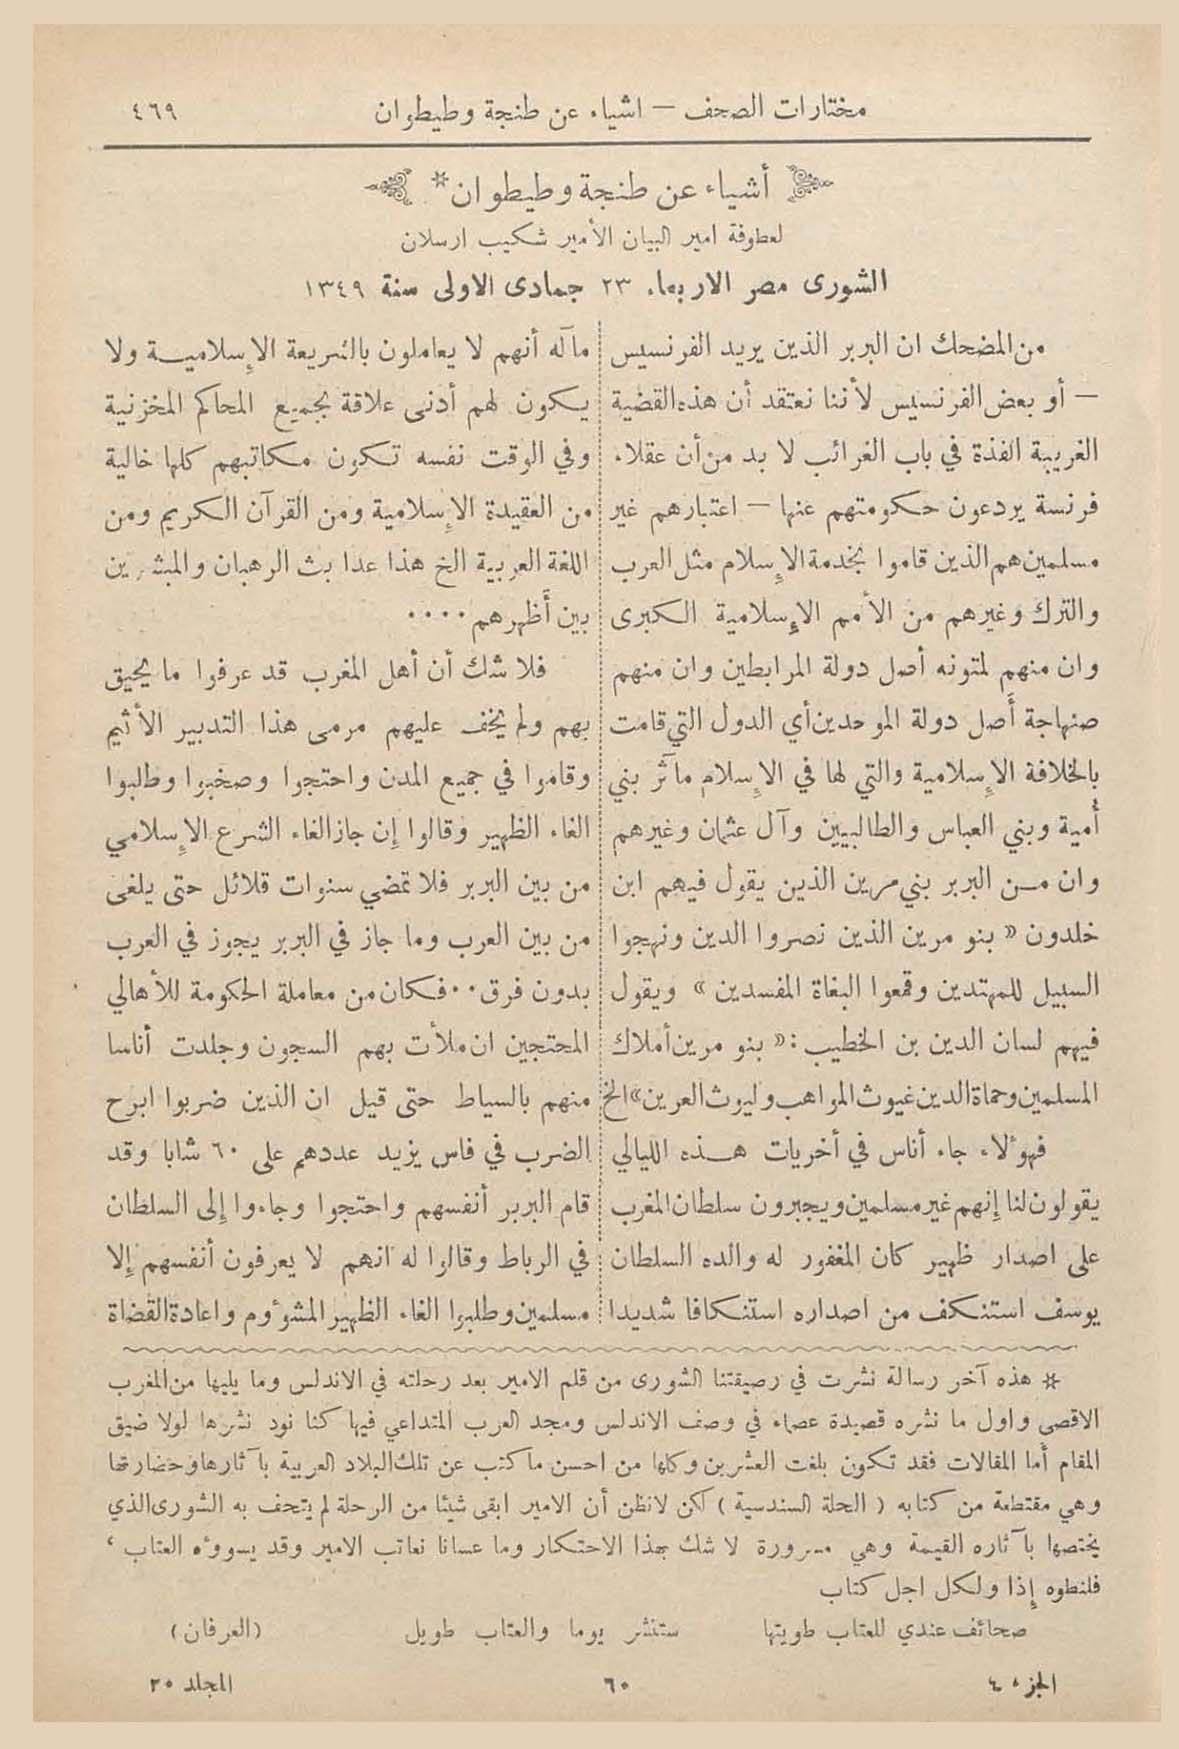 مختارات الصحف — اشياء عن طنجة وطيطوان
٤٦٩
أشياء عن طنجة وطيطوان *
لعطوفة امير البيان الأمير شكيب ارسلان
الشورى مصر الاربعاء ٢٣ جمادى الاولى سنة ١٣٤٩
من المضحك ان البربر الذين يريد الفرنسيس
— أو بعض الفرنسيس لأننا نعتقد أن هذه القضية
الغريبة الفذة في باب الغرائب لا بد من أن عقلاء
فرنسة يردعون حكومتهم عنها — اعتبارهم غير
مسلمين هم الذين قاموا بخدمة الإسلام مثل العرب
والترك وغيرهم من الأمم الإسلامية الكبرى
وان منهم لمتونه أصل دولة المرابطين وان منهم
صنهاجة أَصل دولة الموحدين أي الدول التي قامت
بالخلافة الإسلامية والتي لها في الإسلام مآثر بني
أُمية وبني العباس والطالبيين وآل عثمان وغيرهم
وان مـن البربر بني مرين الذين يقول فيهم ابن
خلدون « بنو مرين الذين نصروا الدين ونهجوا
السبيل للمهتدين وقمعوا البغاة المفسدين » ويقول
فيهم لسان الدين بن الخطيب : « بنو مرين أملاك
المسلمين وحماة الدين غيوث المواهب وليوث العرين » الخ
فهؤلاء جاء أناس في أخريات هـذه الليالي
يقولون لنا إنهم غير مسلمين ويجبرون سلطان المغرب
على اصدار ظهير كان المغفور له والده السلطان
يوسف استنكف من اصداره استنكافا شديدا
مآله أنهم لا يعاملون بالشريعة الإسلاميـة ولا
يكون لهم أدنى علاقة بجميع المحاكم المخزنية
وفي الوقت نفسه تكون مكاتبهم كلها خالية
من العقيدة الإسلامية ومن القرآن الكريم ومن
اللغة العربية الخ هذا عدا بث الرهبان والمبشرين
بين أَظهرهم ٠٠٠٠
فلا شك أن أهل المغرب قد عرفوا ما يحيق
بهم ولم يخف عليهم مرمى هذا التدبير الأثيم
وقاموا في جميع المدن واحتجوا وصخبوا وطلبوا
الغاء الظهير وقالوا إن جاز الغاء الشرع الإسلامي
من بين البربر فلا تمضي سنوات قلائل حتى يلغى
من بين العرب وما جاز في البربر يجوز في العرب
بدون فرق ٠٠ فكان من معاملة الحكومة للأهالي
المحتجين ان ملأت بهم السجون وجلدت أناسا
منهم بالسياط حتى قيل ان الذين ضربوا ابرح
الضرب في فاس يزيد عددهم على ٦٠ شابا وقد
قام البربر أنفسهم واحتجوا وجاءوا إلى السلطان
في الرباط وقالوا له انهم لا يعرفون أنفسهم إلا
مسلمين وطلبوا الغاء الظهير المشؤوم واعادة القضاة
* هذه آخر رسالة نشرت في رصيفتنا الشورى من قلم الامير بعد رحلته في الاندلس وما يليها من المغرب
الاقصى واول ما نشره قصيدة عصماء في وصف الاندلس ومجد العرب المتداعي فيها كنا نود نشرها لولا ضيق
المقام أما المقالات فقد تكون بلغت العشرين وكلها من احسن ما كتب عن تلك البلاد العربية بآثارها وحضارتها
وهي مقتطعة من كتابه ( الحلة السندسية ) لكن لانظن أن الامير ابقى شيئا من الرحلة لم يتحف به الشورى الذي
يختصها بآثاره القيمة وهي مسرورة لا شك بهذا الاحتكار وما عسانا نعاتب الامير وقد يسوؤه العتاب ،
فلنطوه إِذا ولكل اجل كتاب
صحائف عندي للعتاب طويتها ستنشر يوما والعتاب طويل (العرفان)
الجزء ٤ ٦٠ المجلد ٢٠